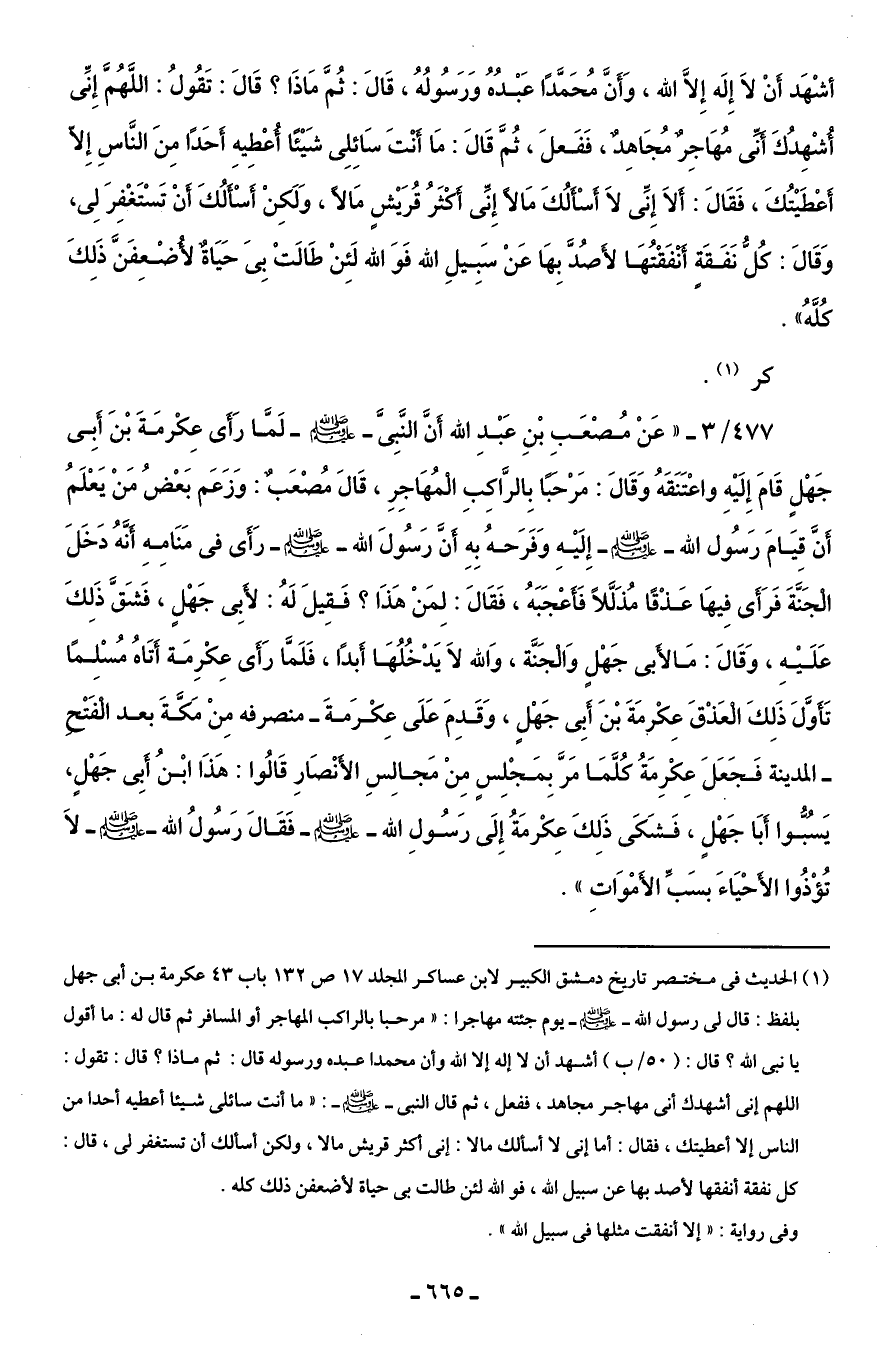 أشْهَد أَنْ لاَ إِلَه إِلاَّ الله ، وَأَنَّ مُحَمَّدًا عَبْدُهُ وَرَسُولُهُ ، قَالَ : ثُمَّ مَاذَا ؟ قَالَ : تَقُولُ : اللَّهُمَّ إِنِّى
أُشْهِدُكَ أَنِّى مُهَاجِرٌ مُجَاهِدٌ ، فَفَعلَ ، ثُمَّ قَالَ : مَا أَنْتَ سَائِلِى شَيْئًا أُعْطِيهِ أَحَدًا مِنَ النَّاسِ إِلاَّ
أَعْطَيْتُكَ ، فَقَالَ : أَلاَ إِنِّى لاَ أَسْأَلُكَ مَالاً إِنِّى أَكْثَرُ قُرَيْشٍ مَالاً ، وَلَكِنْ أَسْأَلُكَ أَنْ تَسْتَغْفِرَ لِى،
وَقَالَ : كُلُّ نَفَقَةٍ أَنْفَقْتُهَا لأَصدَّ بِهَا عَنْ سَبِيلِ الله فَوَ الله لَئِنْ طَالَتْ بِىَ حَيَاةٌ لأُضْعِفَنَّ ذَلِكَ
كُلَّهُ» .
كر (١) .
٣/٤٧٧ ـ « عَنْ مُصْعَبِ بْنِ عَبْدِ الله أَنَّ النَّبِىَّ ـ ﷺ ـ لَمَّا رَأَى عِكْرِمَةَ بْنَ أَبِى
جَهْلٍ قَامَ إِلَيْهِ واعْتَنَقَهُ وَقَالَ : مَرْحَبًا بِالرَّاكِبِ الْمُهَاجِرِ ، قَالَ مُصْعَبٌ : وَزَعَم بَعْضُ مَنْ يَعْلَمُ
أَنَّ قِيَامَ رَسُولِ الله ـ ﷺ ـ إِلَيْهِ وَفَرَحَهُ بِهِ أَنَّ رَسُولَ الله ـ ﷺ ـ رَأَى فِى مَنَامِهِ أَنَّهُ دَخَلَ
الْجَنَّةَ فَرَأَى فِيهَا عَذْقًا مُذَلَّلاً فَأَعْجَبَهُ ، فَقَالَ : لِمَنْ هَذَا ؟ فَقِيلَ لَهُ : لأَبِى جَهْلٍ ، فَشَقَّ ذَلِكَ
عَلَيْهِ ، وَقَالَ : مَالأَبِى جَهْلٍ وَالْجَنَّة ، وَالله لاَ يَدْخُلُهَا أَبدًا ، فَلَمَّا رَأَى عِكْرِمَة أَتَاهُ مُسْلِمًا
تَأَوَّلَ ذَلِكَ الْعَذْقَ عِكْرِمَةَ بْنَ أَبِى جَهْلٍ ، وَقَدِمَ عَلَى عِكْرِمَةَ ـ منصرفه مِنْ مَكَّةَ بعد الْفَتْحِ
ـ المدينة فَجَعَلَ عِكْرِمَةُ كُلَّمَا مَرَّ بِمَجْلِسٍ مِنْ مَجَالِسِ الأَنْصَارِ قَالُوا : هَذَا ابْنُ أَبِى جَهْلٍ،
يَسُبُّوا أَبَا جَهْلٍ ، فَشَكَى ذَلِكَ عِكْرِمَةُ إِلَى رَسُولِ الله ـ ﷺ ـ فَقَالَ رَسُولُ الله ـ ﷺ ـ لاَ
تُؤْذُوا الأَحْيَاءَ بِسَبِّ الأَمْوَاتِ » .
(١) الحديث فى مختصر تاريخ دمشق الكبير لابن عساكر المجلد ١٧ ص ١٣٢ باب ٤٣ عكرمة بن أبى جهل
بلفظ : قال لى رسول الله ـ ﷺ ـ يوم جئته مهاجرا : « مرحبا بالراكب المهاجر أو المسافر ثم قال له : ما أقول
يا نبى الله ؟ قال : ( ٥٠/ ب ) أشهد أن لا إله إلا الله وأن محمدا عبده ورسوله قال : ثم ماذا ؟ قال : تقول :
اللهم إنى أشهدك أنى مهاجر مجاهد ، ففعل ، ثم قال النبى ـ ﷺ ـ : « ما أنت سائلى شيئا أعطيه أحدا من
الناس إلا أعطيتك ، فقال : أما إنى لا أسألك مالا : إنى أكثر قريش مالا ، ولكن أسألك أن تستغفر لى ، قال :
كل نفقة أنفقها لأصد بها عن سبيل الله ، فو الله لئن طالت بى حياة لأضعفن ذلك كله .
وفى رواية : « إلا أنفقت مثلها فى سبيل الله » .
ـ ٦٦٥ ـ